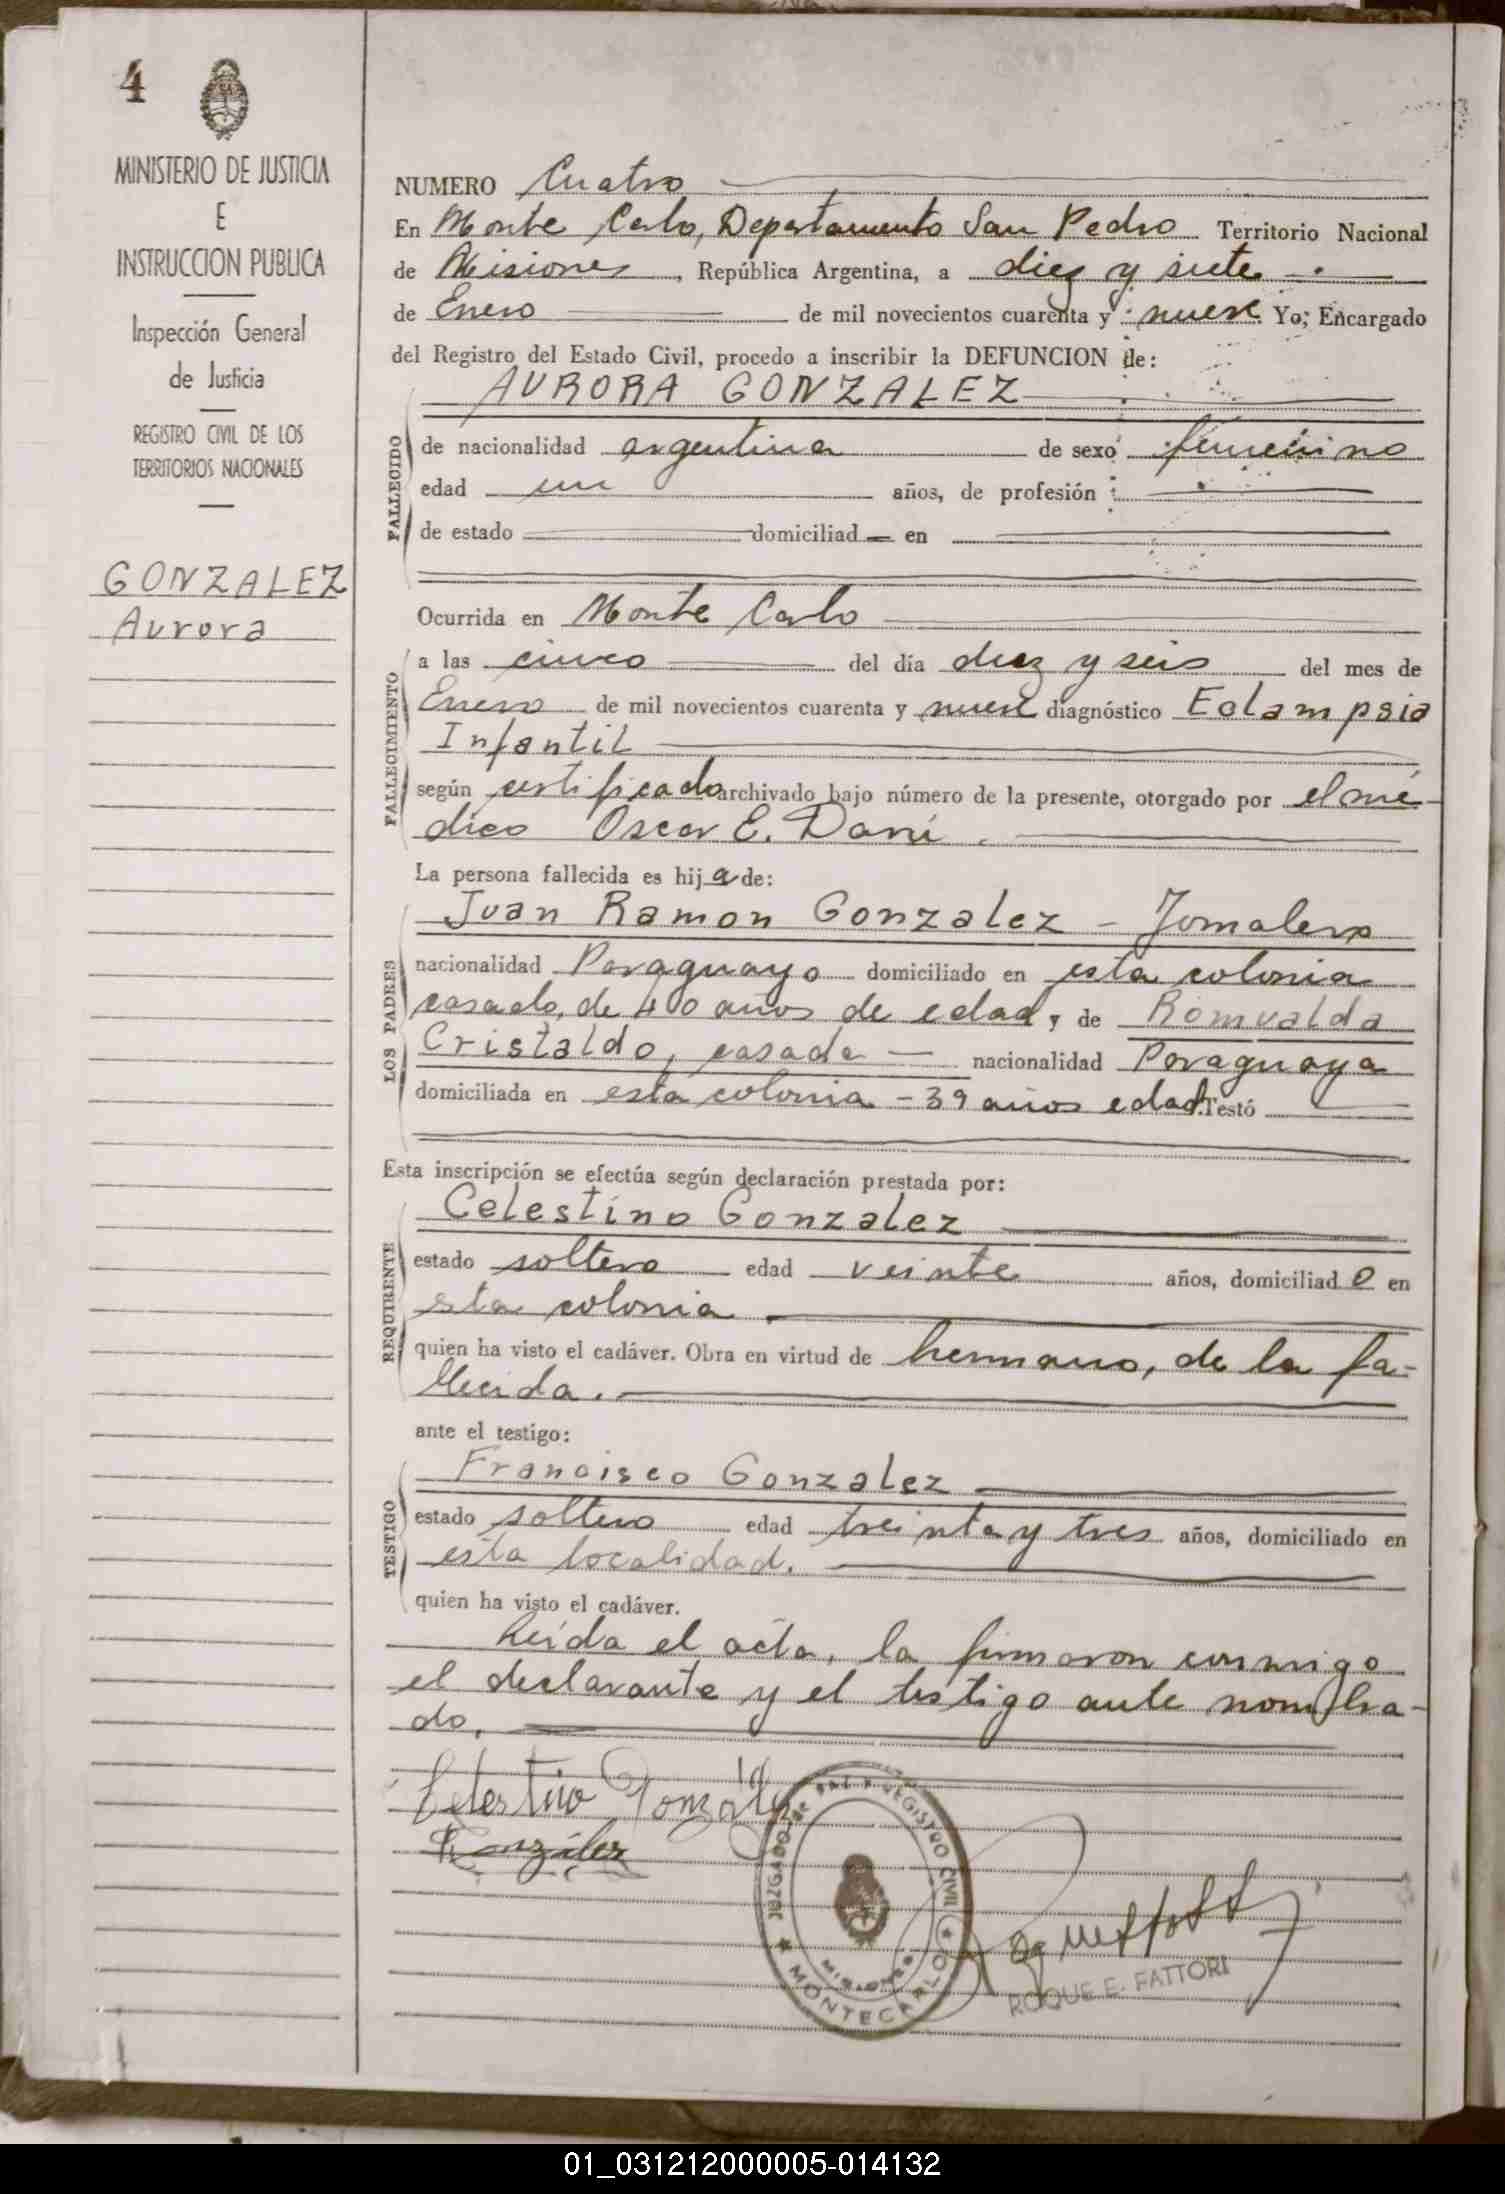 4
MINISTERIO DE JUSTICIA
E
INSTRUCCION PUBLICA
Inspección General
de Justicia
REGISTRO CIVIL DE LOS
TERRITORIOS NACIONALES
GONZALEZ
Aurora
NUMERO Cuatro
En Monte Carlo, Departamento San Pedro Territorio Nacional
de Misiones, República Argentina, a diez y siete
de Enero de mil novecientos cuarenta y nueve Yo; Encargado
del Registro del Estado Civil, procedo a inscribir la DEFUNCION de:
AURORA GONZALEZ
FALLECIDO
de nacionalidad argentina de sexo femenino
edad un años, de profesión
de estado domiciliad en
Ocurrida en Monte Carlo
FALLECIMIENTO
a las cinco del día diez y seis del mes de
Enero de mil novecientos cuarenta y nueve diagnóstico Eclampsia
Infantil
según certificado archivado bajo número de la presente, otorgado por el mé-
dico Oscar E.
La persona fallecida es hija de:
LOS PADRES
Juan Ramon Gonzalez - Jornalero
nacionalidad Paraguayo domiciliado en esta colonia
casado, de 40 años de edad, y de Romualda
Cristaldo, casada - nacionalidad Paraguaya
domiciliada en esta colonia - 39 años edad. Testó
Esta inscripción se efectúa según declaración prestada por:
REQUIRENTE
Celestino Gonzalez
estado soltero edad veinte años, domiciliado en
esta colonia
quien ha visto el cadáver. Obra en virtud de hermano, de la fa-
llecida.
ante el testigo:
TESTIGO
Francisco Gonzalez
estado soltero edad treinta y tres años, domiciliado en
esta localidad.
quien ha visto el cadáver.
Leída el acta, la firmaron conmigo
el declarante y el testigo ante nombra-
do.
Celestino Gonzáles
González
JUZGADO DE PAZ Y REGISTRO CIVIL
MISIONES
★ MONTECARLO ★
ROQUE E. FATTORI
01_031212000005-014132